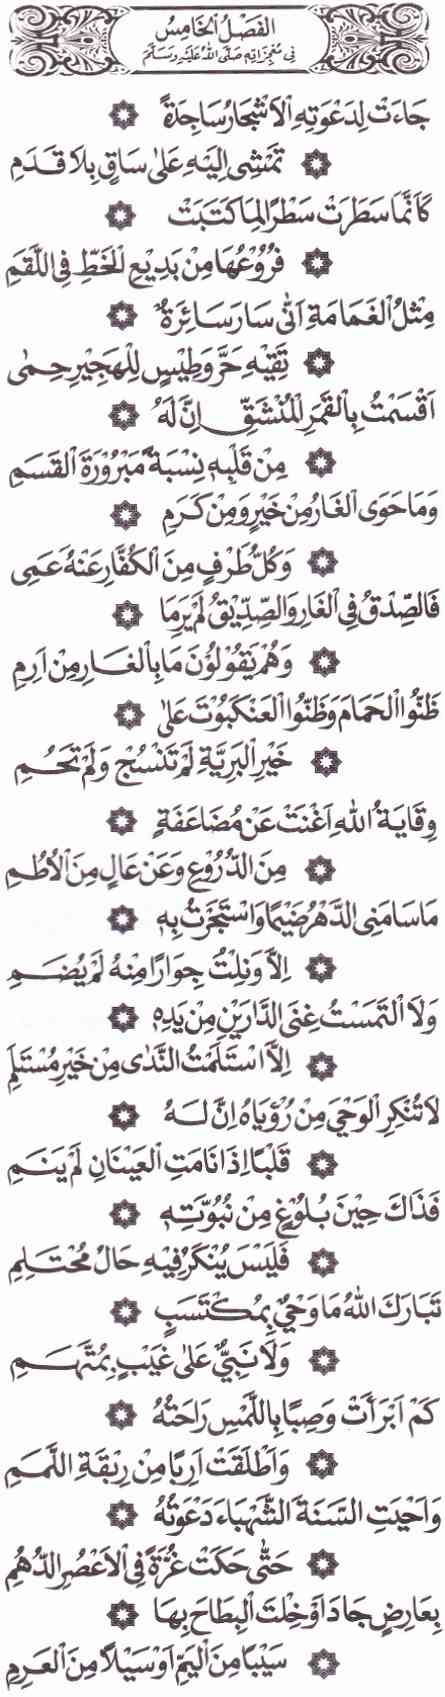 اَلْفَصْلُ الْخَامِسُ
فِي مُعْجِزَاتِهِ صَلَّى اللهُ عَلَيْهِ وَسَلَّمَ
جَاءَتْ لِدَعْوَتِهِ الْاَشْجَارُ سَاجِدَةً
تَمْشِى اِلَيْهِ عَلٰى سَاقٍ بِلَا قَدَمِ
كَاَنَّمَا سَطَرَتْ سَطْرًا لِمَا كَتَبَتْ
فُرُوْعُهَا مِنْ بَدِيْعِ الْخَطِّ فِى اللَّقَمِ
مِثْلُ الْغَمَامَةِ اَنّٰى سَارَ سَائِرَةٌ
تَقِيْهِ حَرَّ وَطِيْسٍ لِلْهَجِيْرِ حِمٰى
اَقْسَمْتُ بِالْقَمَرِ الْمُنْشَقِّ اِنَّ لَهُ
مِنْ قَلْبِهٖ نِسْبَةً مَبْرُوْرَةَ الْقَسَمِ
وَمَا حَوَى الْغَارُ مِنْ خَيْرٍ وَمِنْ كَرَمِ
وَكُلُّ طَرْفٍ مِنَ الْكُفَّارِ عَنْهُ عَمِى
فَالصِّدْقُ فِى الْغَارِ وَالصِّدِّيْقُ لَمْ يَرِمَا
وَهُمْ يَقُوْلُوْنَ مَا بِالْغَارِ مِنْ اَرِمِ
ظَنُّوا الْحَمَامَ وَظَنُّوا الْعَنْكَبُوْتَ عَلٰى
خَيْرِ الْبَرِيَّةِ لَمْ تَنْسُجْ وَلَمْ تَحُمِ
وِقَايَةُ اللهِ اَغْنَتْ عَنْ مُضَاعَفَةٍ
مِنَ الدُّرُوْعِ وَعَنْ عَالٍ مِنَ الْاُطُمِ
مَا سَامَنِى الدَّهْرُ ضَيْمًا وَاسْتَجَرْتُ بِهٖ
اِلَّا وَنِلْتُ جِوَارًا مِنْهُ لَمْ يُضَمِ
وَلَا الْتَمَسْتُ غِنَى الدَّارَيْنِ مِنْ يَدِهٖ
اِلَّا اسْتَلَمْتُ النَّدٰى مِنْ خَيْرِ مُسْتَلَمِ
لَا تُنْكِرِ الْوَحْيَ مِنْ رُؤْيَاهُ اِنَّ لَهُ
قَلْبًا اِذَا نَامَتِ الْعَيْنَانِ لَمْ يَنَمِ
فَذَاكَ حِيْنَ بُلُوْغٍ مِنْ نُبُوَّتِهٖ
فَلَيْسَ يُنْكَرُ فِيْهِ حَالُ مُحْتَلِمِ
تَبَارَكَ اللهُ مَا وَحْيٌ بِمُكْتَسَبٍ
وَلَا نَبِيٌّ عَلٰى غَيْبٍ بِمُتَّهَمِ
كَمْ اَبْرَأَتْ وَصِبًا بِاللَّمْسِ رَاحَتُهُ
وَاَطْلَقَتْ اَرِبًا مِنْ رِبْقَةِ اللَّمَمِ
وَاَحْيَتِ السَّنَةَ الشَّهْبَاءَ دَعْوَتُهُ
حَتّٰى حَكَتْ غُرَّةً فِى الْاَعْصُرِ الدُّهُمِ
بِعَارِضٍ جَادَ اَوْ خِلْتَ الْبِطَاحَ بِهَا
سَيْبًا مِنَ الْيَمِّ اَوْ سَيْلًا مِنَ الْعَرِمِ